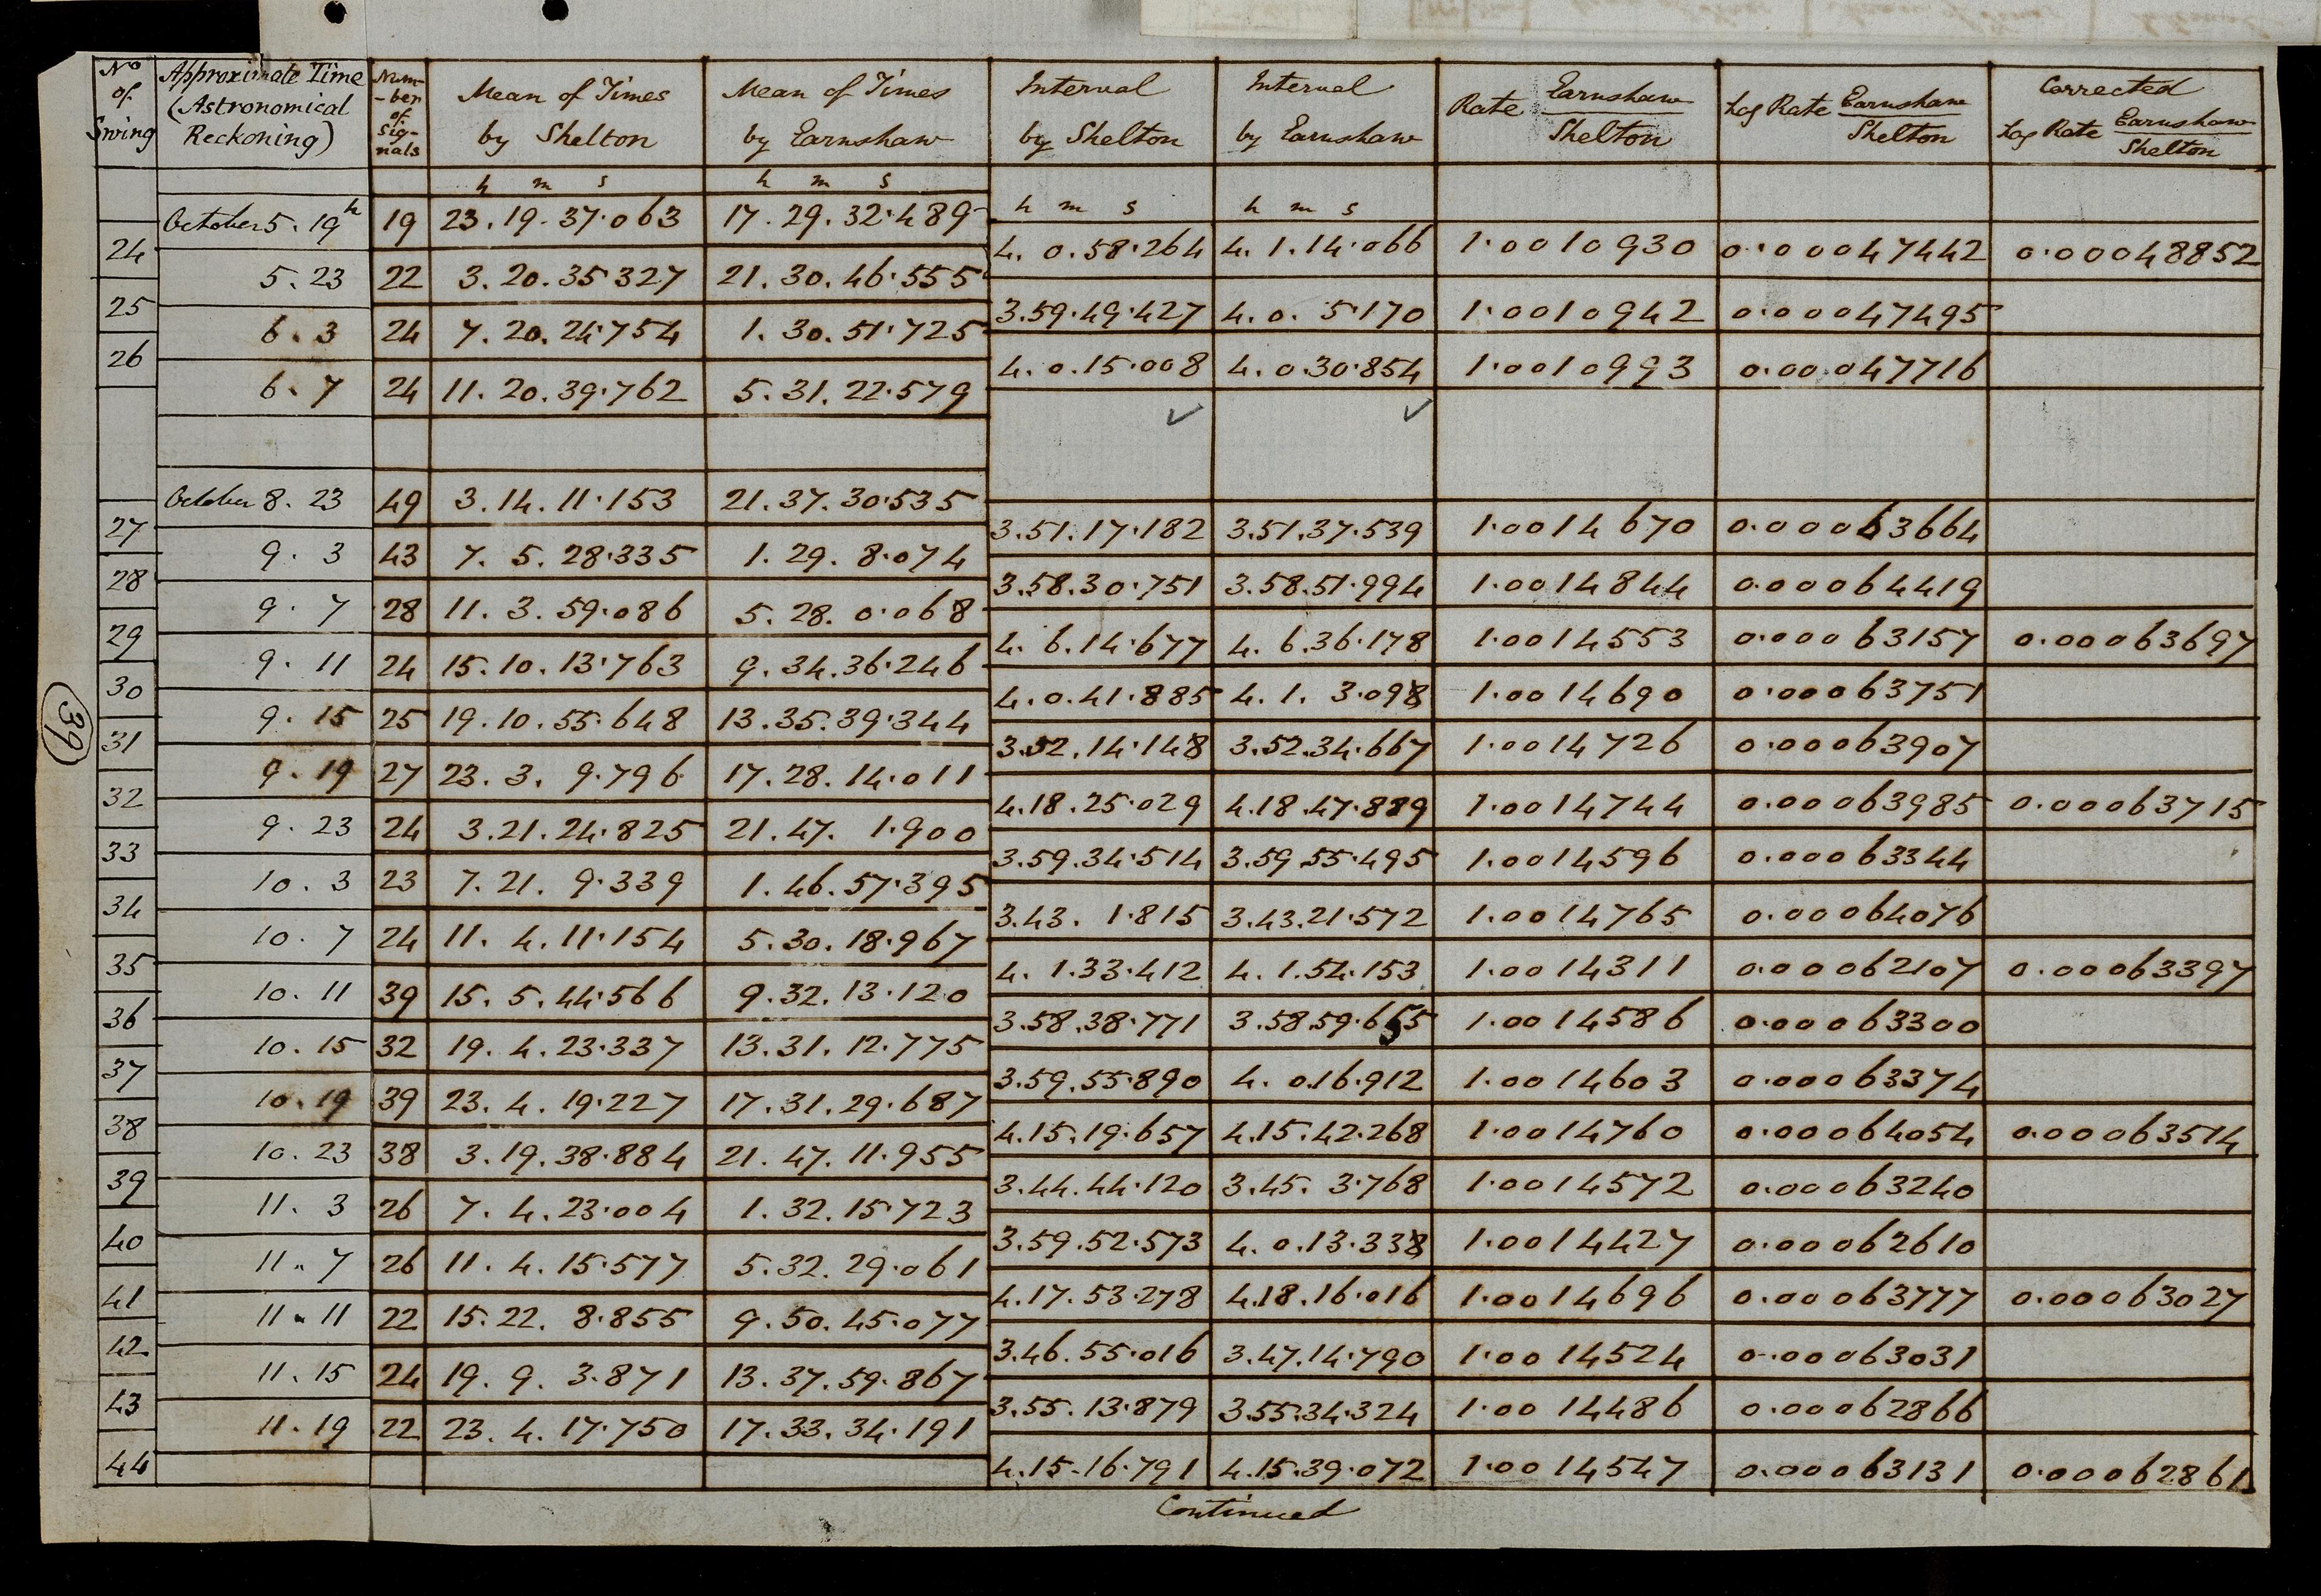 No of Swing Approximate Time (Astronomical Reckoning) Num-ber of Sig-nals Mean of Times by Shelton Mean of Times by Earnshaw Interval by Shelton Interval by Earnshaw Rate Earnshaw/Shelton Log Rate Earnshaw/Shelton Corrected Log Rate Earnshaw/Shelton
h m s h m s h m s h m s
October 5. 19h 19 23.19.37.063 17.29.32.489
24 4. 0.58.264 4. 1.14.066 1.0010930 0.00047442 0.00048852
5. 23 22 3.20.35.327 21.30.46.555
25 3.59.49.427 4. 0. 5.170 1.0010942 0.00047495
6. 3 24 7.20.24.754 1.30.51.725
26 4. 0.15.008 4. 0.30.854 1.0010993 0.00047716
6. 7 24 11.20.39.762 5.31.22.579
✓ ✓
October 8. 23 49 3.14.11.153 21.37.30.535
27 3.51.17.182 3.51.37.539 1.0014670 0.00063664
9. 3 43 7. 5.28.335 1.29. 8.074
28 3.58.30.751 3.58.51.994 1.0014844 0.00064419
9. 7 28 11. 3.59.086 5.28. 0.068
29 4. 6.14.677 4. 6.36.178 1.0014553 0.00063157 0.00063697
9. 11 24 15.10.13.763 9.34.36.246
30 4. 0.41.885 4. 1. 3.098 1.0014690 0.00063751
9. 15 25 19.10.55.648 13.35.39.344
31 3.52.14.148 3.52.34.667 1.0014726 0.00063907
9. 19 27 23. 3. 9.796 17.28.14.011
32 4.18.25.029 4.18.47.889 1.0014744 0.00063985 0.00063715
9. 23 24 3.21.24.825 21.47. 1.900
33 3.59.34.514 3.59.55.495 1.0014596 0.00063344
10. 3 23 7.21. 9.339 1.46.57.395
34 3.43. 1.815 3.43.21.572 1.0014765 0.00064076
10. 7 24 11. 4.11.154 5.30.18.967
35 4. 1.33.412 4. 1.54.153 1.0014311 0.00062107 0.00063397
10. 11 39 15. 5.44.566 9.32.13.120
36 3.58.38.771 3.58.59.655 1.0014586 0.00063300
10. 15 32 19. 4.23.337 13.31.12.775
37 3.59.55.890 4. 0.16.912 1.0014603 0.00063374
10. 19 39 23. 4.19.227 17.31.29.687
38 4.15.19.657 4.15.42.268 1.0014760 0.00064054 0.00063514
10. 23 38 3.19.38.884 21.47.11.955
39 3.44.44.120 3.45. 3.768 1.0014572 0.00063240
11. 3 26 7. 4.23.004 1.32.15.723
40 3.59.52.573 4. 0.13.338 1.0014427 0.00062610
11. 7 26 11. 4.15.577 5.32.29.061
41 4.17.53.278 4.18.16.016 1.0014696 0.00063777 0.00063027
11. 11 22 15.22. 8.855 9.50.45.077
42 3.46.55.016 3.47.14.790 1.0014524 0.00063031
11. 15 24 19. 9. 3.871 13.37.59.867
43 3.55.13.879 3.55.34.324 1.0014486 0.00062866
11. 19 22 23. 4.17.750 17.33.34.191
44 4.15.16.791 4.15.39.072 1.0014547 0.00063131 0.00062861
Continued
39